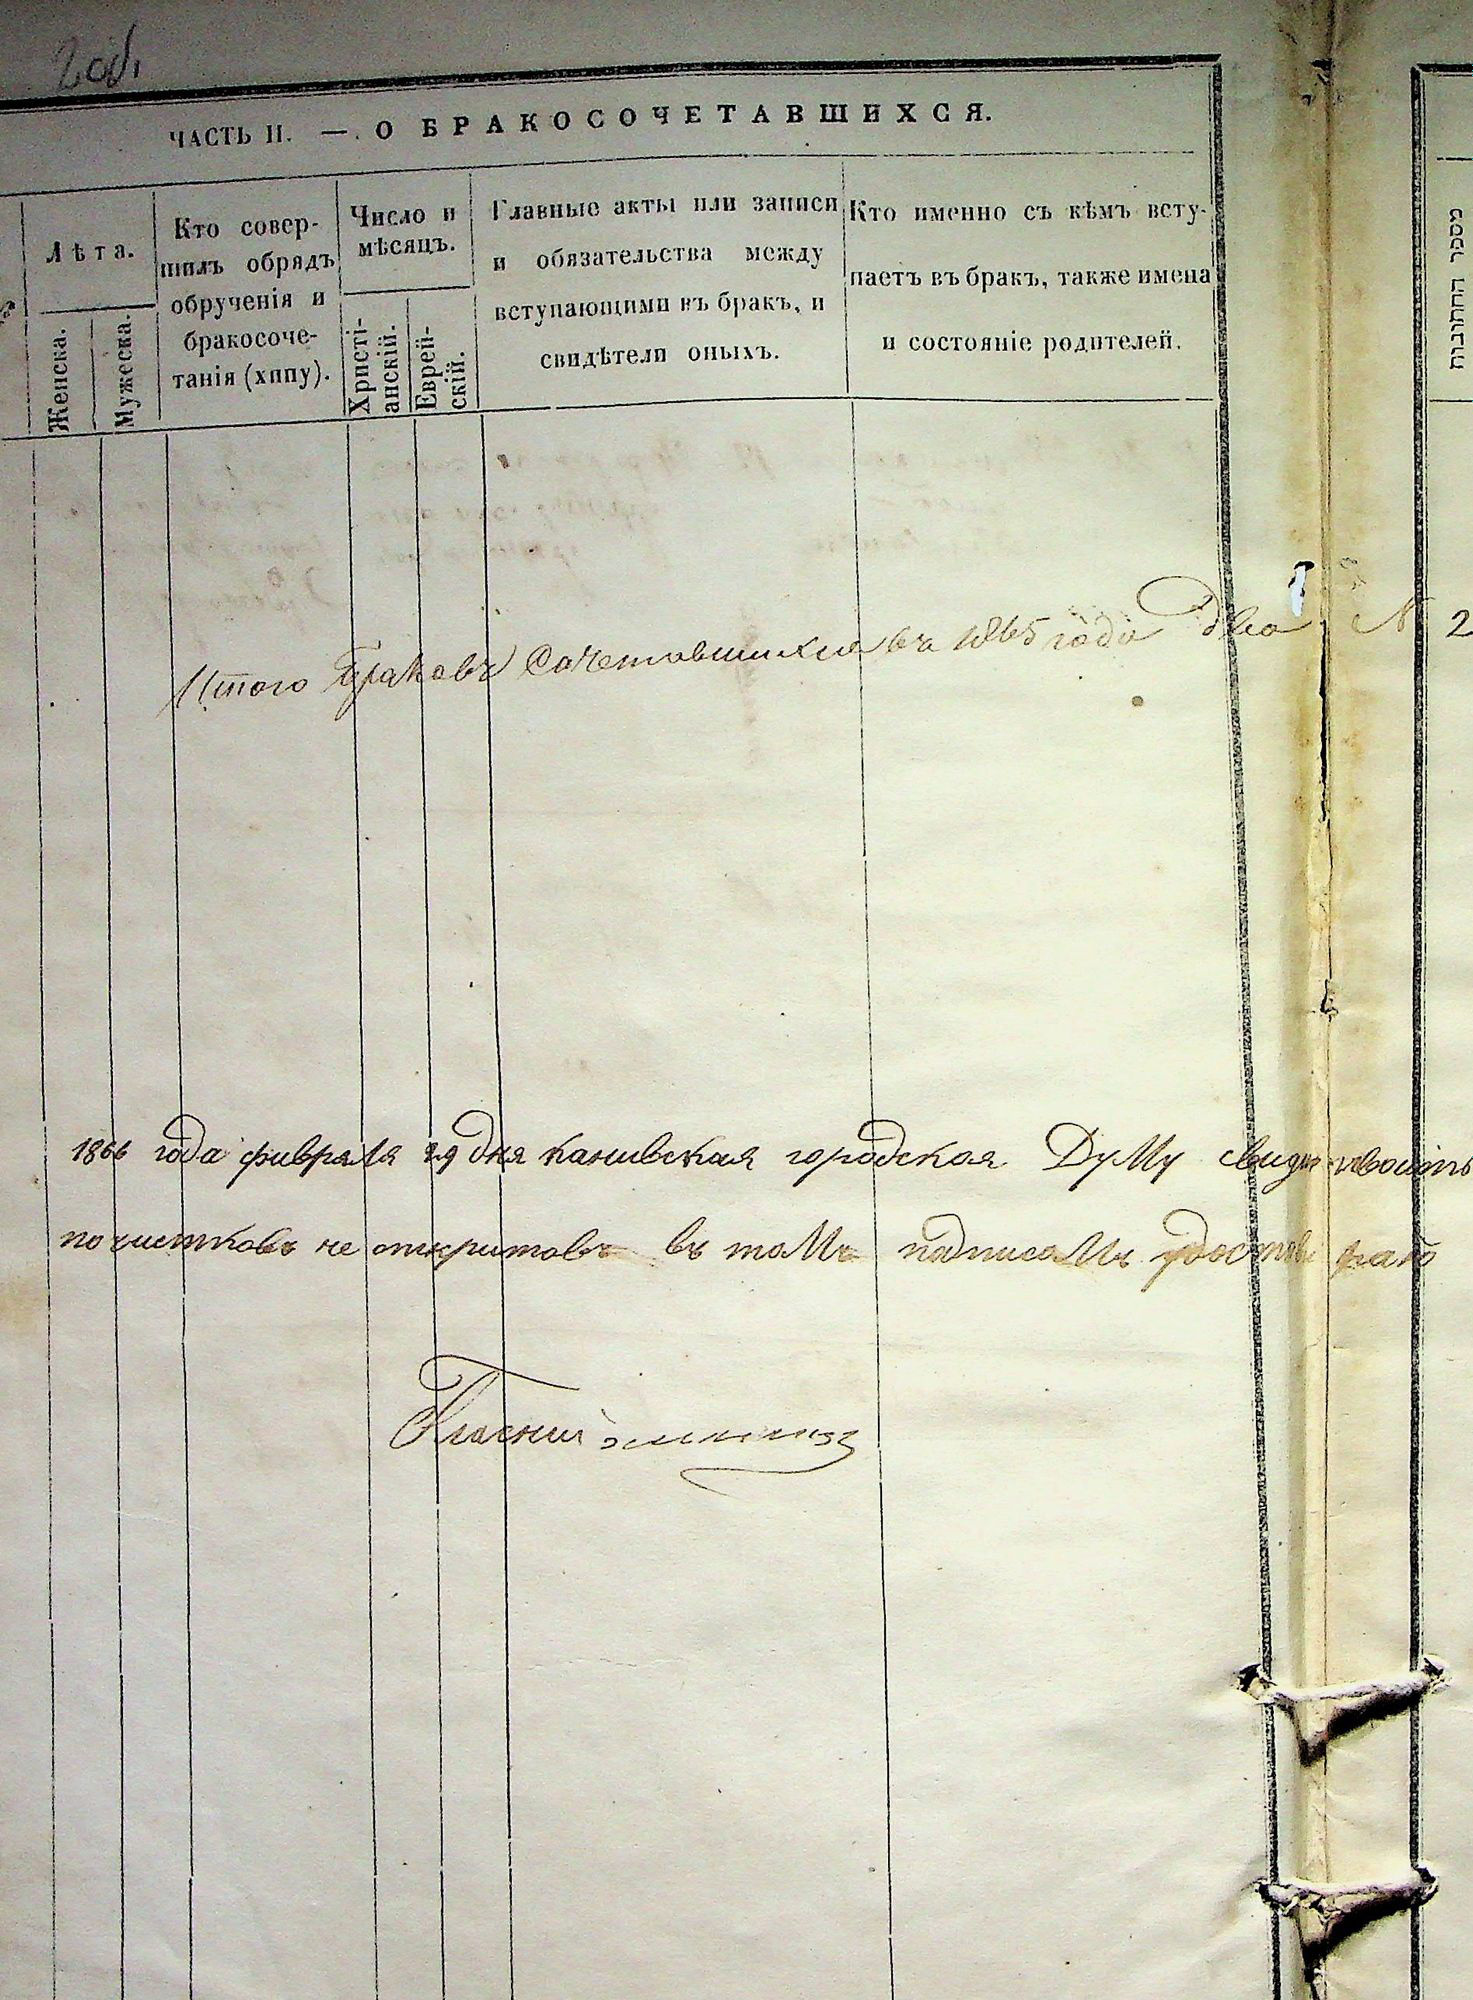 2 об.
ЧАСТЬ II. — О БРАКОСОЧЕТАВШИХСЯ.
Лѣта.
Женска.
Мужеска.
Кто совер-
шилъ обрядъ
обрученія и
бракосоче-
танія (хипу).
Число и
мѣсяцъ.
Христі-
анскій.
Еврей-
скій.
Главные акты или записи
и обязательства между
вступающими въ бракъ, и
свидѣтели оныхъ.
Кто именно съ кѣмъ всту-
паетъ въ бракъ, также имена
и состояніе родителей.
מספר החתונות
Итого Браковъ Сочетавшихся въ 1865 года два N 2
1866 года февраля 29 дня каневская городская Думу
почистковъ не открытовъ въ томъ подписомъ
Гласний